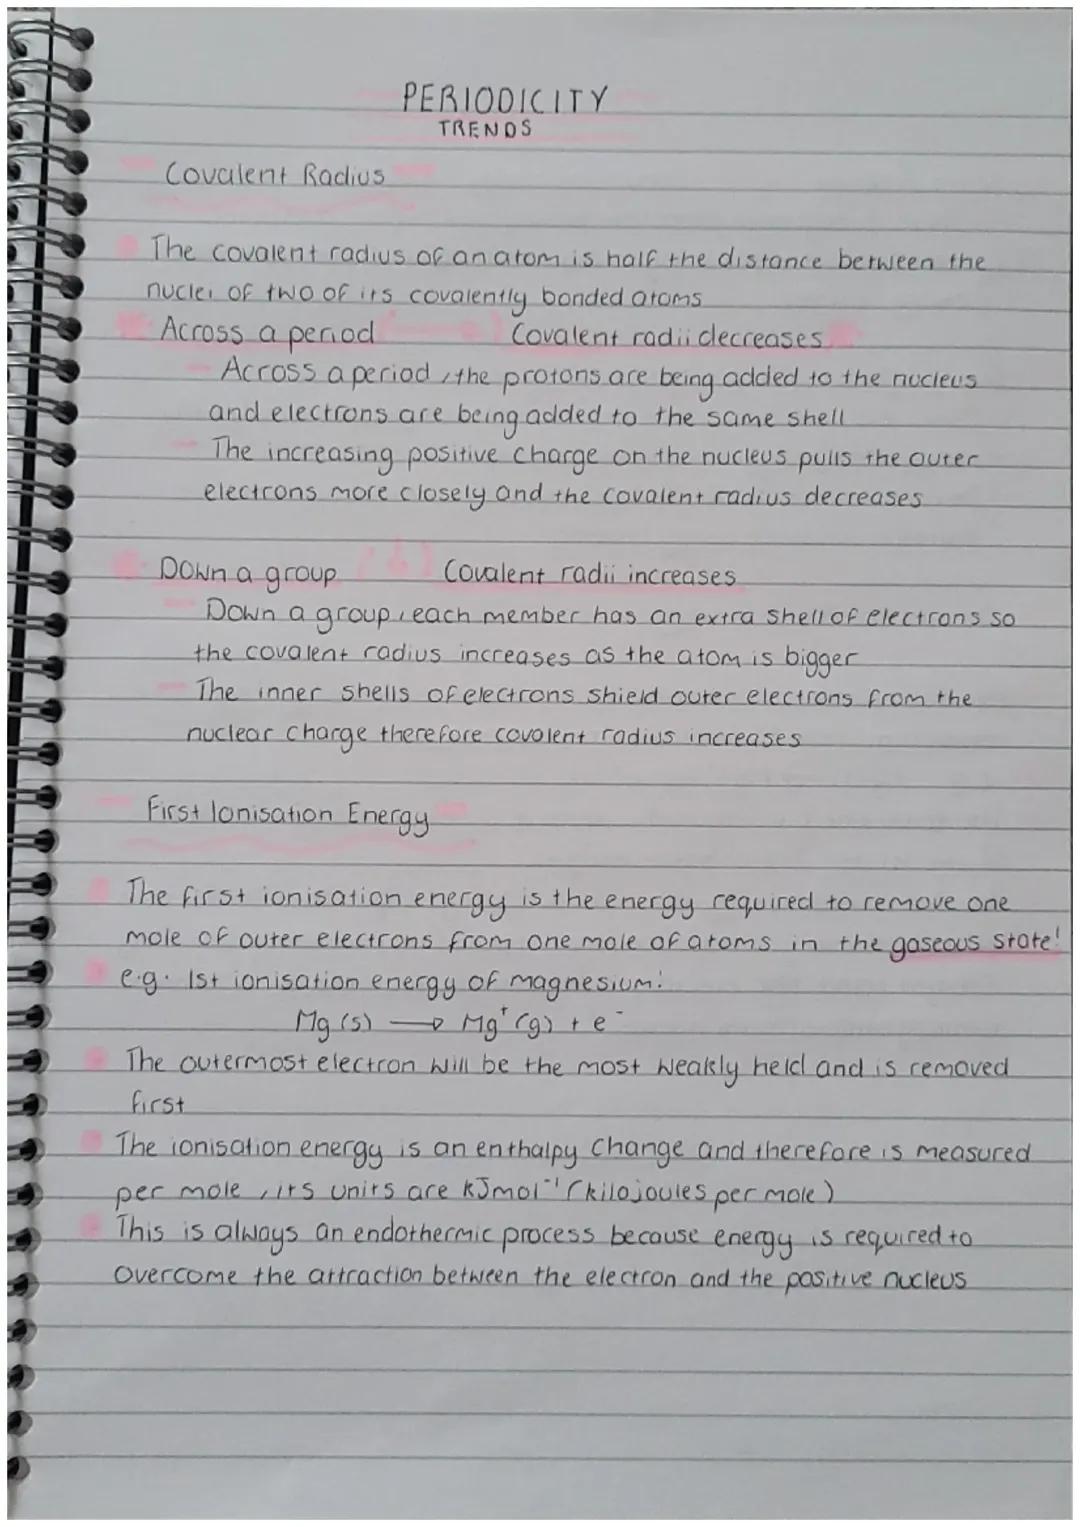 PERIODICITY
TRENDS
Covalent Radius
The covalent radius of an atom is half the distance between the
nuclei of two of its covalently bonded atoms
Across a period (→) Covalent radii decreases
Across a period, the protons are being added to the nucleus
and electrons are being added to the same shell
The increasing positive charge on the nucleus pulls the outer
electrons more closely and the covalent radius decreases
Down a group (↓) Covalent radii increases
Down a group, each member has an extra shell of electrons so
the covalent radius increases as the atom is bigger
The inner shells of electrons shield outer electrons from the
nuclear charge therefore covalent radius increases
First Ionisation Energy
The first ionisation energy is the energy required to remove one
mole of outer electrons from one mole of atoms in the gaseous state!
e.g. 1st ionisation energy of magnesium:
Mg (s) → Mg⁺ (g) + e⁻
The outermost electron will be the most weakly held and is removed
first
The ionisation energy is an enthalpy change and therefore is measured
per mole, its units are kJmol⁻¹ (kilojoules per mole)
This is always an endothermic process because energy is required to
overcome the attraction between the electron and the positive nucleus